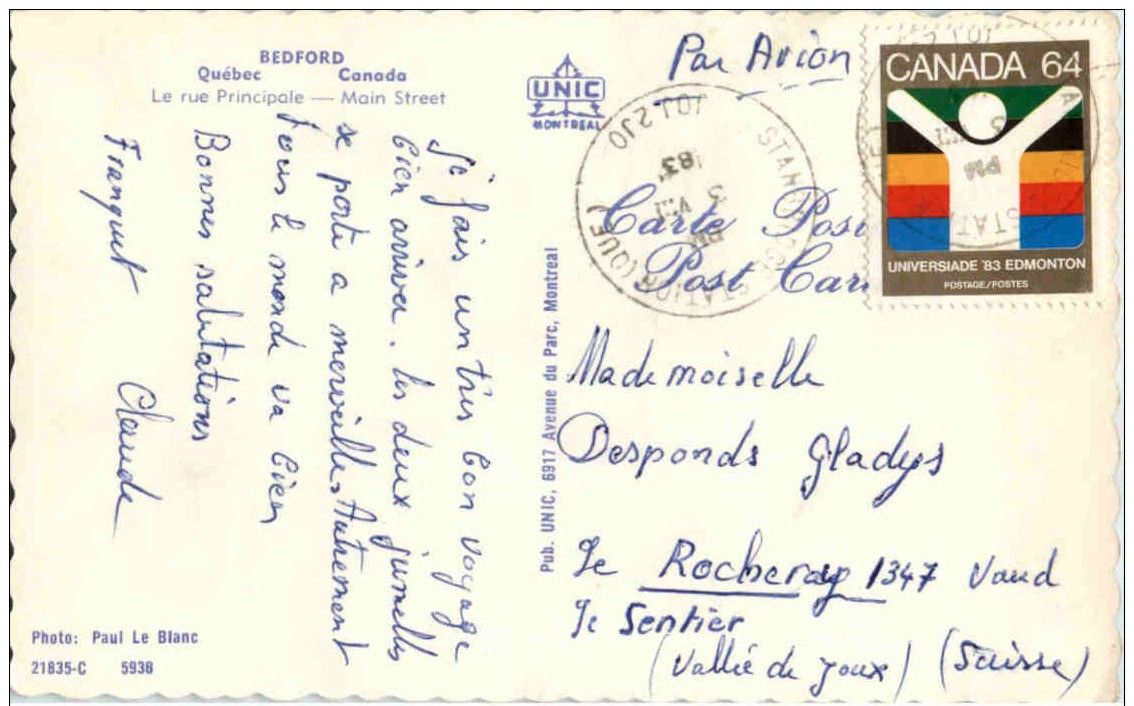 BEDFORD
Québec Canada
Le rue Principale — Main Street
UNIC
MONTREAL
Par Avion
CANADA 64
UNIVERSIADE '83 EDMONTON
POSTAGE/POSTES
STATION (QUE)
J0J 2J0
PM
3
VII
'83
Carte Post
Post Car
Je fais un très bon voyage
bien arriver. les deux jumelles
se porte a merveille. Autrement
tous le monde va bien
Bonnes salutations
Franquet Claude
Pub. UNIC, 6917 Avenue du Parc, Montreal
Mademoiselle
Desponds Gladys
Le Rocheray 1347 Vaud
Le Sentier
(Vallée de joux) (Suisse)
Photo: Paul Le Blanc
21835-C 5938